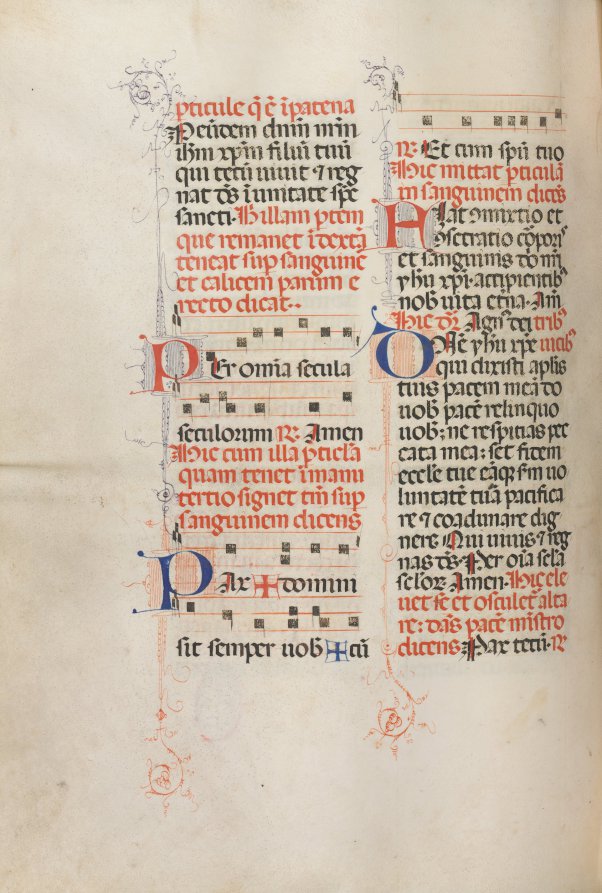 pticule q̄ ē ī patena
Peūdem dnm̄ nr̄m
ihm xp̄m filiū tuū
qui tecū uiuit ⁊ reg
nat d̄s ī unitate sp̄s
sancti. Hic illam ptem
que remanet ī dextā
teneat sup sanguinē
et calicem parum e
recto dicat..
Per omīa secula
seculorum R̄. Amen
Hic cum illa pticla
quam tenet ī manu
tertio signet tm̄ sup
sanguinem dicens
Pax ✠ domini
sit semper uob ✠ cū
R̄. Et cum spū tuo
Hic mittat pticulā
in sanguinem dicēs
Hat ꝯmixtio et
ꝯsecratio corpori⁹
et sanguinis dn̄i nr̄i
yhu xp̄i. accipientib⁹
nob uita et̄na. Am̄
Hic dr̄ Agn⁹ dei trib⁹
Dn̄e yhu xp̄e uicib⁹
qui dixisti aplis
tuis pacem meā do
uob pacē relinquo
uob; ne respitias pec
cata mea; set fidem
eccle tue eāq; scdm uo
luntatē tuā pacifica
re ⁊ coadunare dig
nere Qui uiuis ⁊ reg
nas d̄s. Per oīa sclā
sclor Amen. Hic ele
uet se et osculet alta
re: dās pacē mīstro
dicens. Pax tecū. R̄